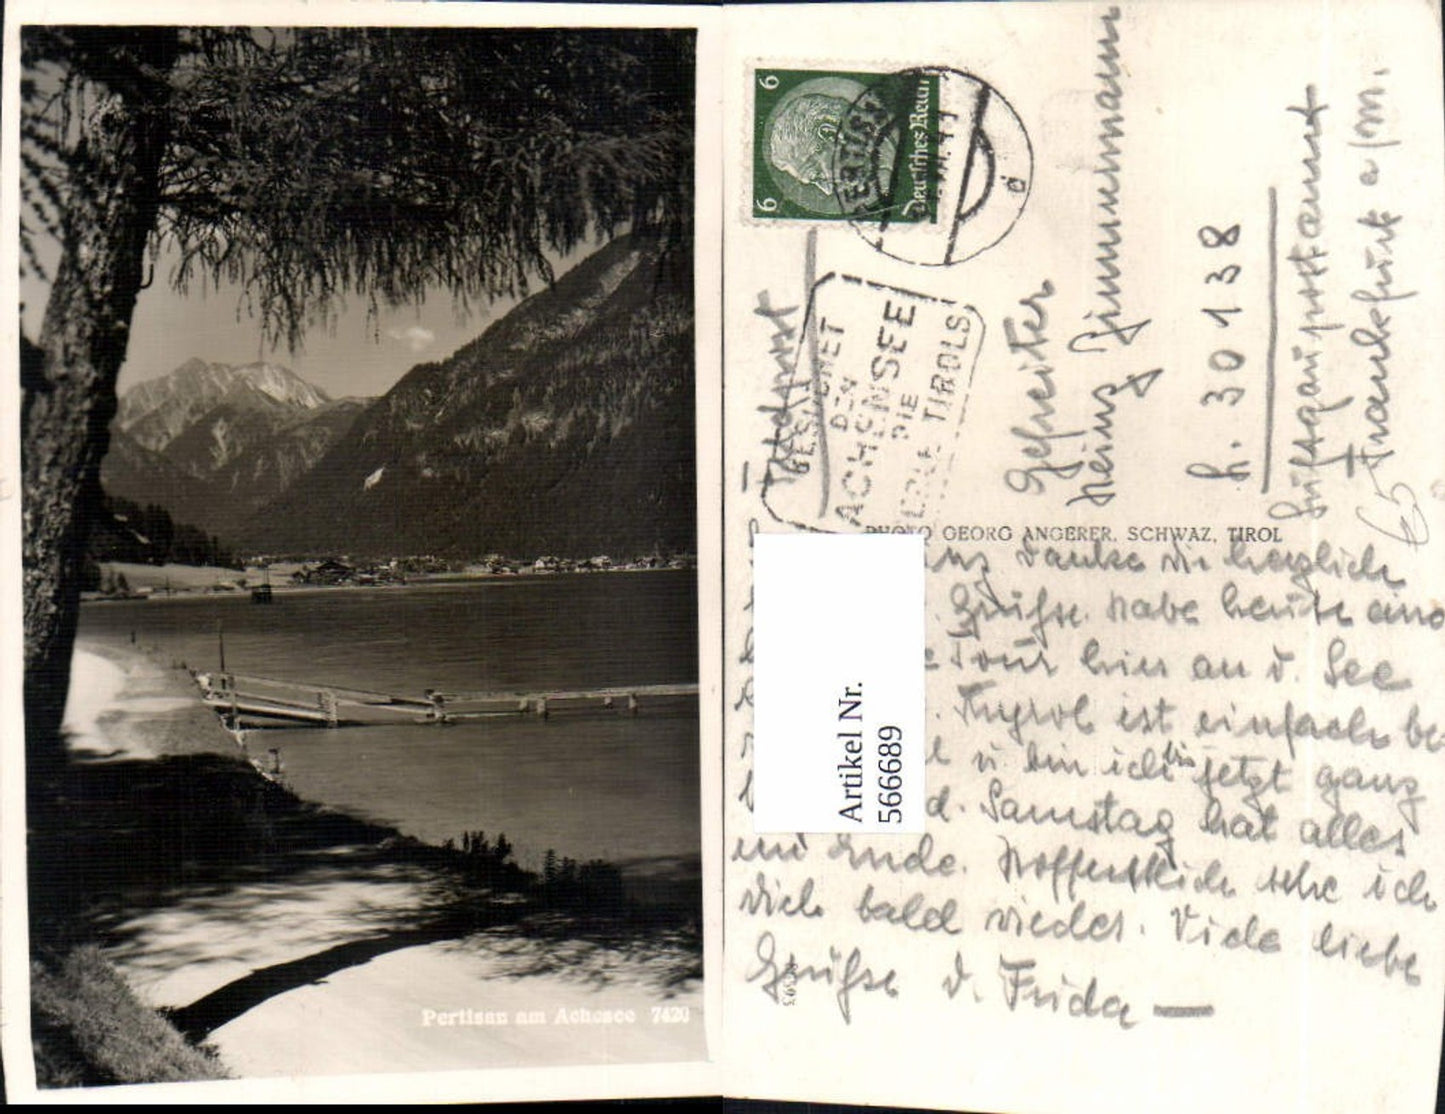 Pertisau am Achensee 7420
6
6
Deutsches Reich
PERTISAU
d
Feldpost
BESUCHET
DEN
ACHENSEE
DIE
PERLE TIROLS
Gefreiter
Heinz Zimmermann
L. 30138
Luftgaupostamt
Frankfurt a/M.
65
PHOTO GEORG ANGERER, SCHWAZ, TIROL
Artikel Nr.
566689
Danke Dir herzlich
Grüße. Habe heute eine
Tour hier an d. See
. Tirol ist einfach be-
u bin ich bis jetzt ganz
d. Samstag hat alles
ein Ende. Hoffentlich sehe ich
Dich bald wieder. Viele liebe
Grüße D. Frida